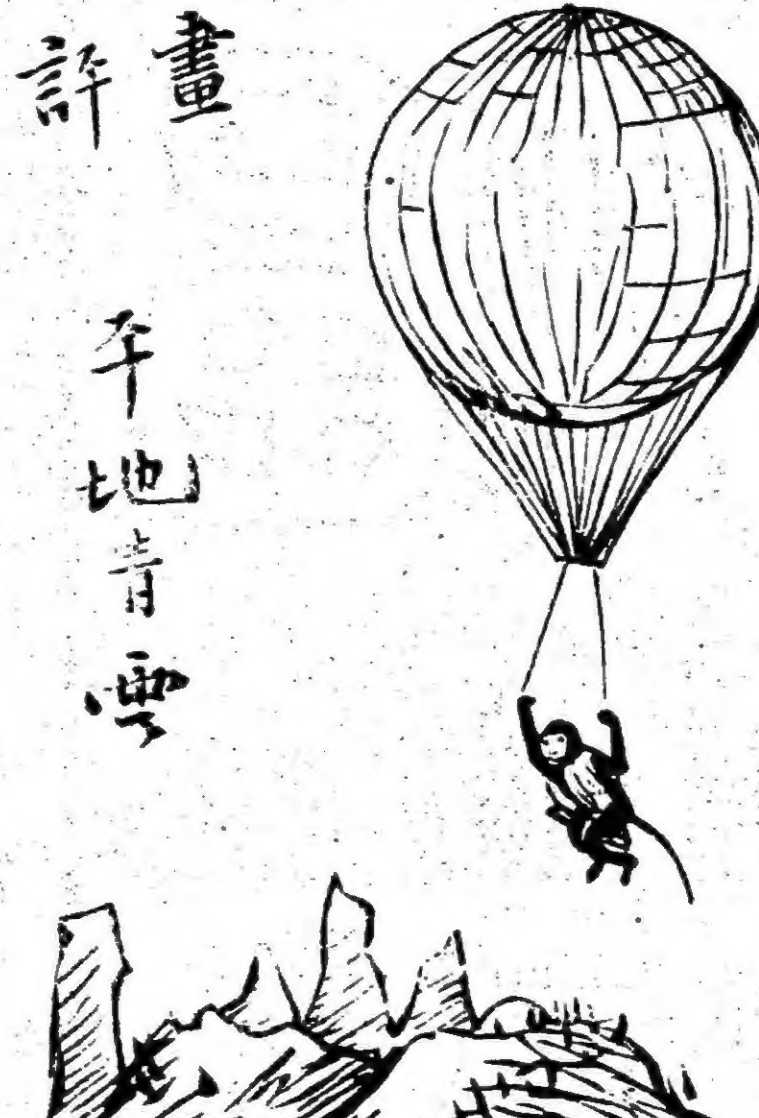 畫評
平地青雲